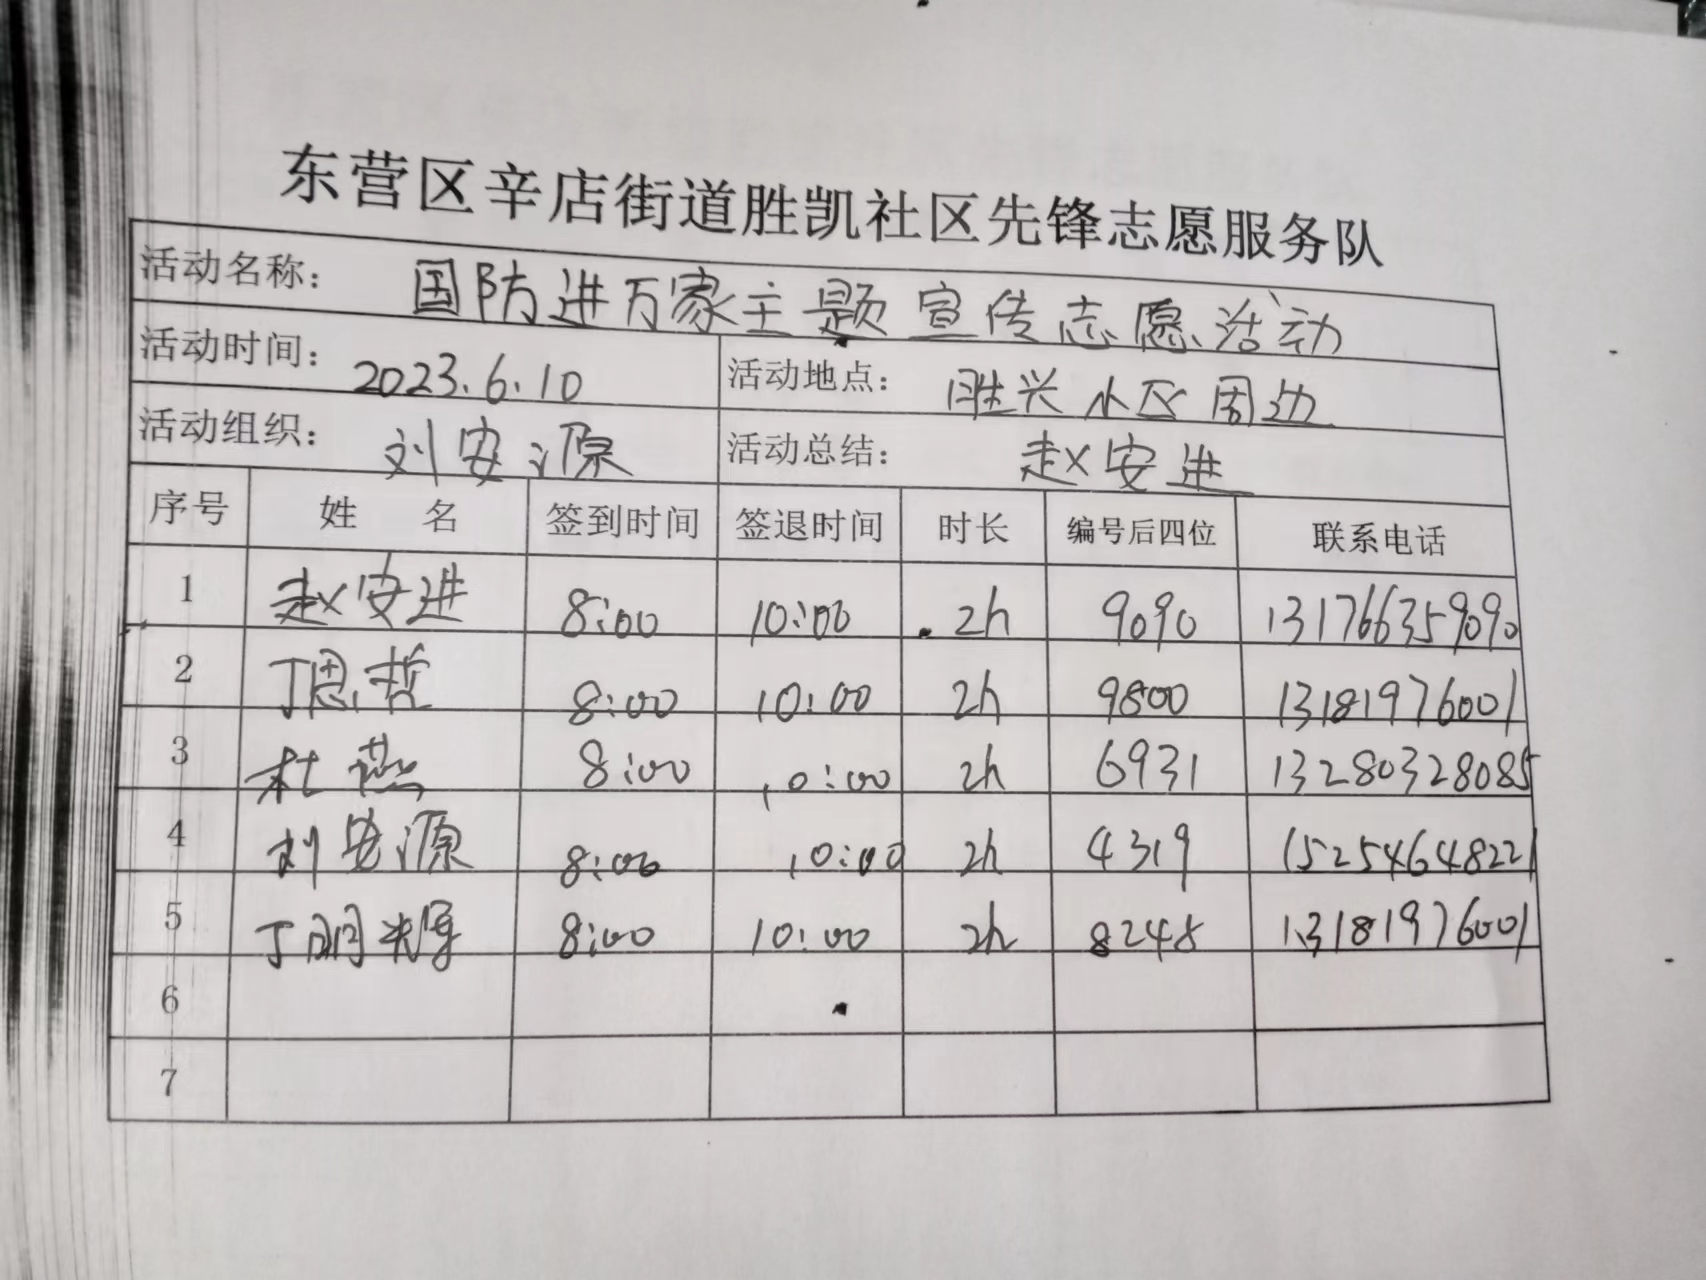 东营区辛店街道胜凯社区先锋志愿服务队
活动名称： 国防进万家主题宣传志愿活动
活动时间： 2023.6.10 活动地点： 胜兴小区周边
活动组织： 刘安源 活动总结： 赵安进
序号 姓 名 签到时间 签退时间 时长 编号后四位 联系电话
1 赵安进 8:00 10:00 2h 9090 131766359090
2 丁恩哲 8:00 10:00 2h 9800 13181976001
3 杜燕 8:00 10:00 2h 6931 13280328085
4 刘安源 8:00 10:00 2h 4319 15254648221
5 丁明 8:00 10:00 2h 8248 13181976001
6
7